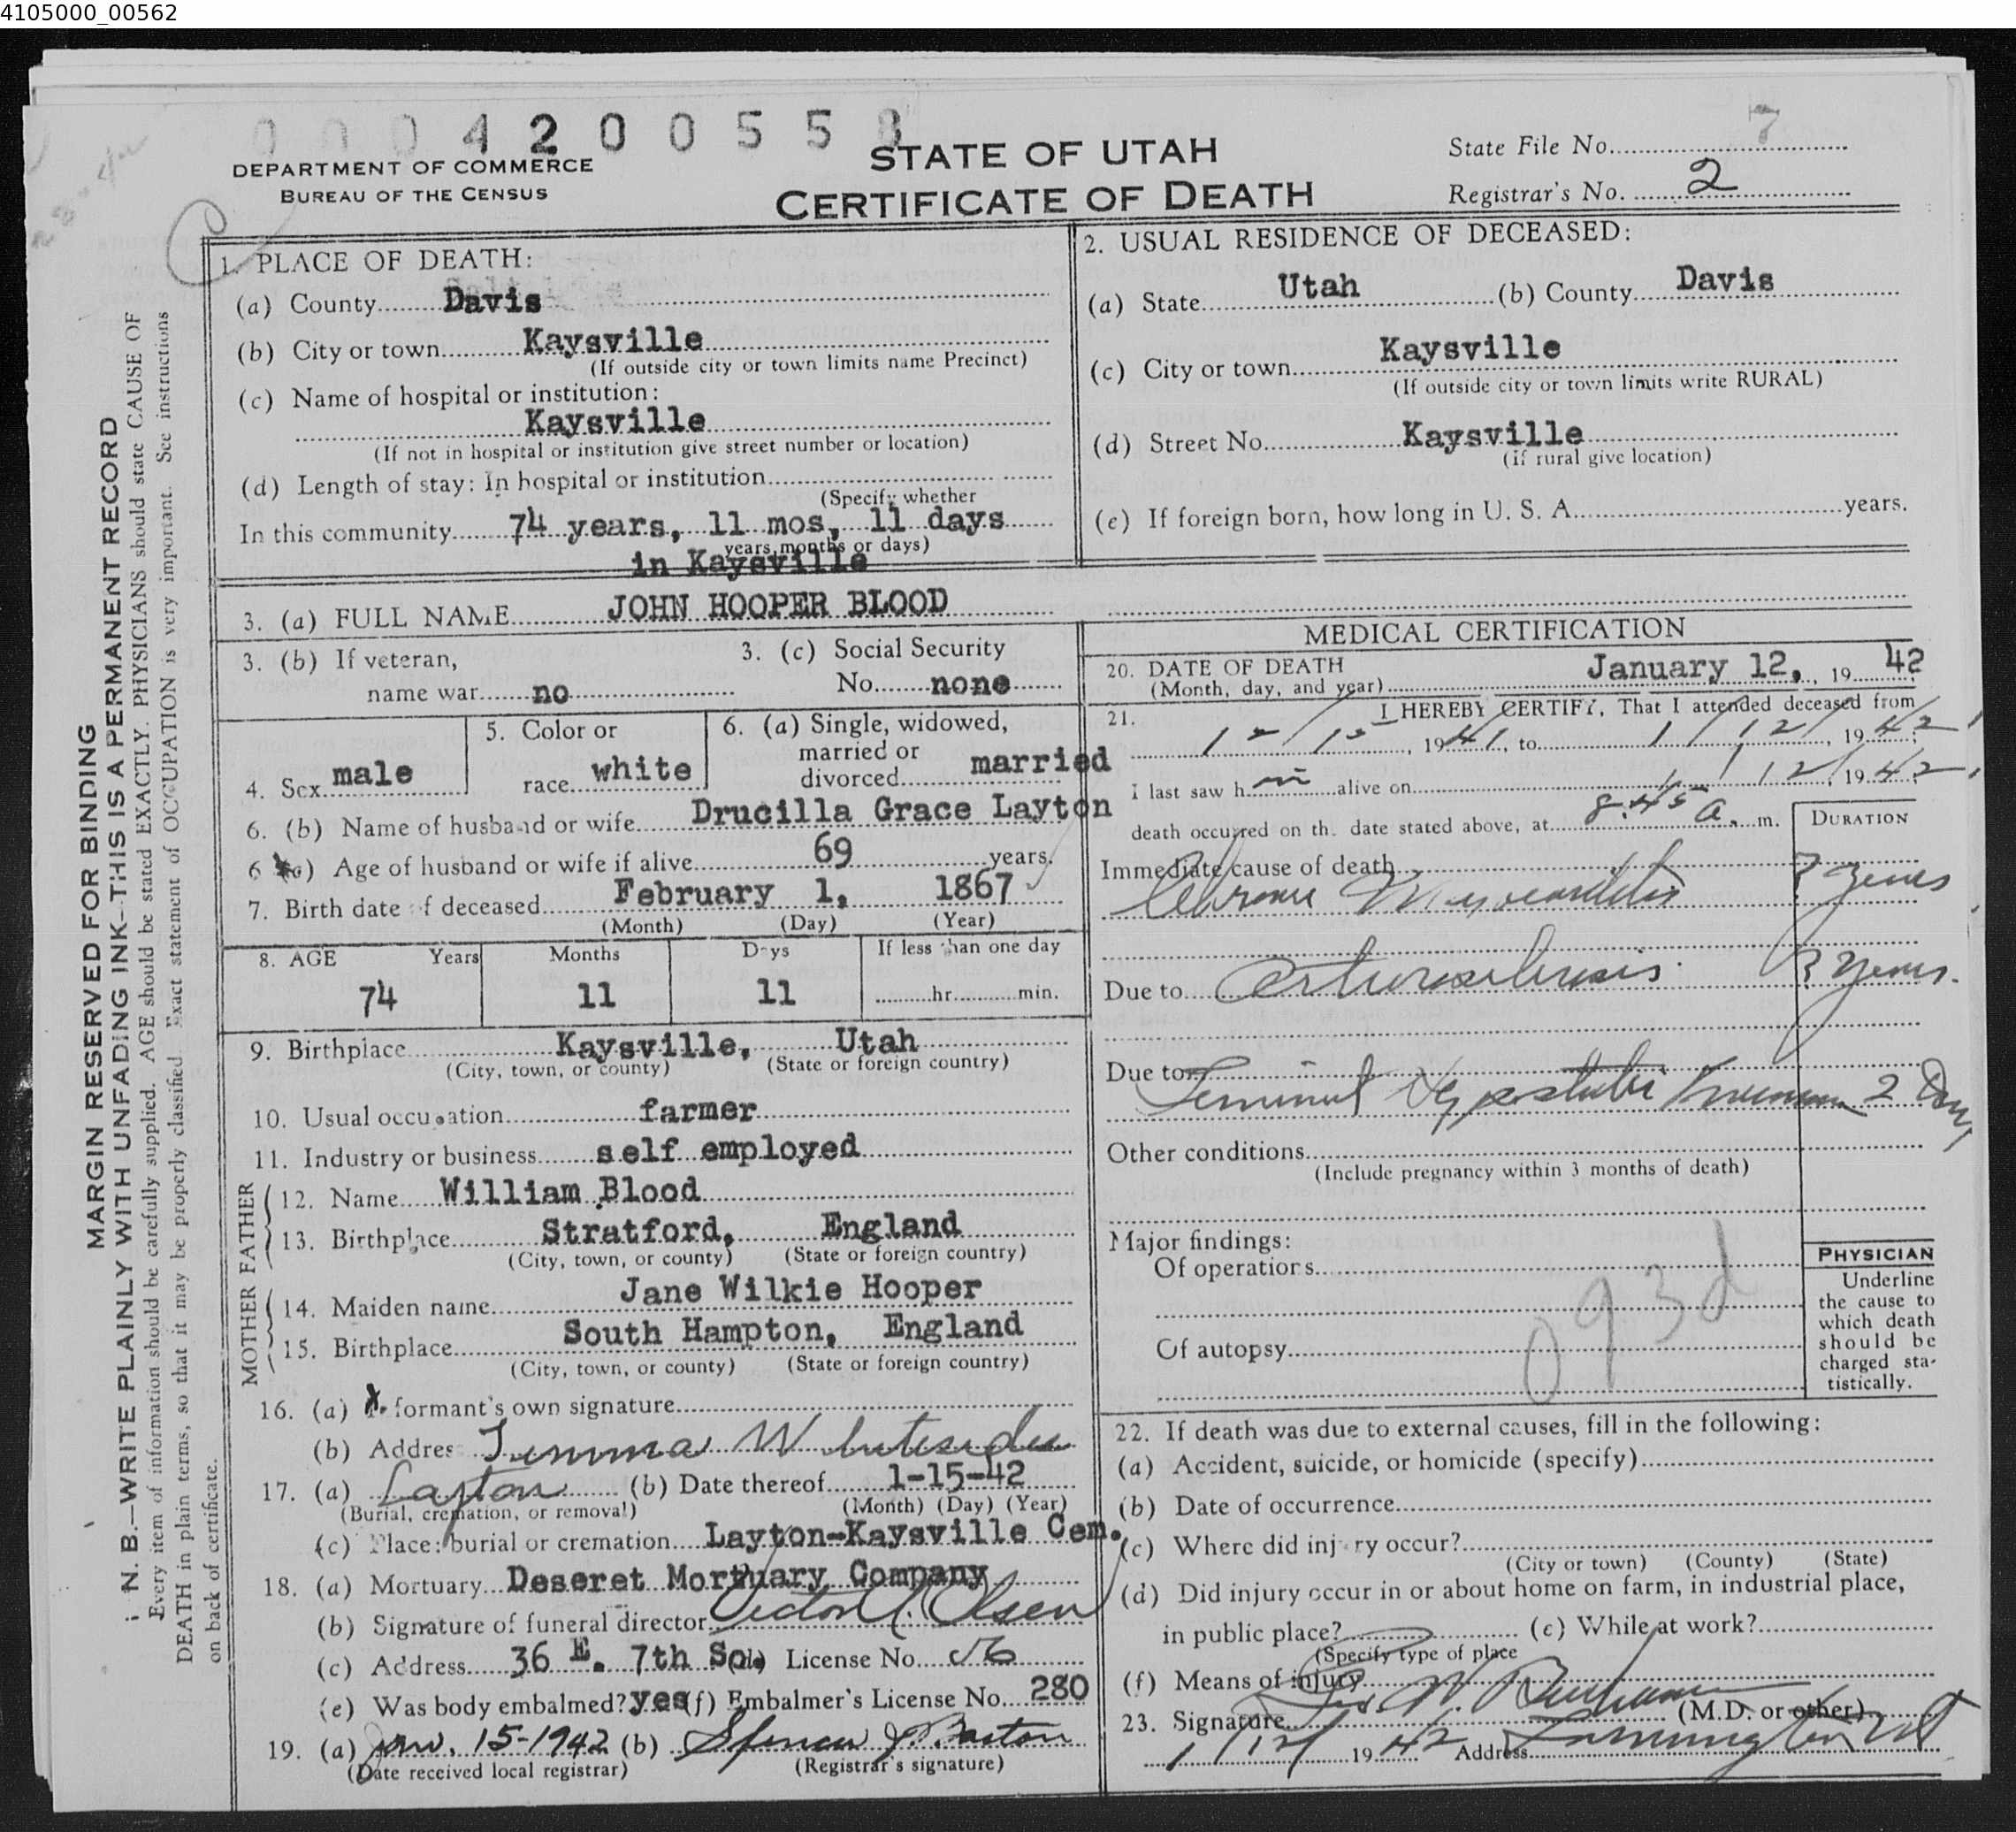 4105000_00562
000420055
STATE OF UTAH
CERTIFICATE OF DEATH
DEPARTMENT OF COMMERCE
BUREAU OF THE CENSUS
State File No. 7
Registrar's No. 2
MARGIN RESERVED FOR BINDING
N. B.—WRITE PLAINLY WITH UNFADING INK—THIS IS A PERMANENT RECORD
Every item of information should be carefully supplied. AGE should be stated EXACTLY. PHYSICIANS should state CAUSE OF
DEATH in plain terms, so that it may be properly classified. Exact statement of OCCUPATION is very important. See instructions
on back of certificate.
1. PLACE OF DEATH:
(a) County Davis
(b) City or town Kaysville
(If outside city or town limits name Precinct)
(c) Name of hospital or institution:
Kaysville
(If not in hospital or institution give street number or location)
(d) Length of stay: In hospital or institution
(Specify whether
In this community 74 years, 11 mos, 11 days
years, months or days)
in Kaysville
2. USUAL RESIDENCE OF DECEASED:
(a) State Utah (b) County Davis
(c) City or town Kaysville
(If outside city or town limits write RURAL)
(d) Street No. Kaysville
(If rural give location)
(e) If foreign born, how long in U. S. A. years.
3. (a) FULL NAME JOHN HOOPER BLOOD
3. (b) If veteran,
name war no
3. (c) Social Security
No. none
4. Sex male
5. Color or
race white
6. (a) Single, widowed,
married or
divorced married
6. (b) Name of husband or wife Drucilla Grace Layton
6 (c) Age of husband or wife if alive 69 years.
7. Birth date of deceased February 1, 1867
(Month) (Day) (Year)
8. AGE Years Months Days If less than one day
74 11 11 hr. min.
9. Birthplace Kaysville, Utah
(City, town, or county) (State or foreign country)
10. Usual occupation farmer
11. Industry or business self employed
FATHER
12. Name William Blood
13. Birthplace Stratford, England
(City, town, or county) (State or foreign country)
MOTHER
14. Maiden name Jane Wilkie Hooper
15. Birthplace South Hampton, England
(City, town, or county) (State or foreign country)
16. (a) Informant's own signature
(b) Address
17. (a) Layton (b) Date thereof 1-15-42
(Burial, cremation, or removal) (Month) (Day) (Year)
(c) Place: burial or cremation Layton-Kaysville Cem.
18. (a) Mortuary Deseret Mortuary Company
(b) Signature of funeral director Olsen
(c) Address 36 E. 7th So. (d) License No. 56
(e) Was body embalmed? yes (f) Embalmer's License No. 280
19. (a) Jan. 15-1942 (b) Spencer J. Barton
(Date received local registrar) (Registrar's signature)
MEDICAL CERTIFICATION
20. DATE OF DEATH
(Month, day, and year) January 12, 19 42
21. I HEREBY CERTIFY, That I attended deceased from
12/12, 19 41, to 1/12/, 19 42,
I last saw h im alive on 1/12/, 19 42,
death occurred on the date stated above, at 8:45 a. m.
DURATION
Immediate cause of death
Chronic Myocarditis ? years
Due to Arteriosclerosis. ? years.
Due to
Terminal Hypostatic Pneumonia 2 Days
Other conditions
(Include pregnancy within 3 months of death)
Major findings:
Of operations
Of autopsy
093d
PHYSICIAN
Underline
the cause to
which death
should be
charged sta-
tistically.
22. If death was due to external causes, fill in the following:
(a) Accident, suicide, or homicide (specify)
(b) Date of occurrence
(c) Where did injury occur?
(City or town) (County) (State)
(d) Did injury occur in or about home on farm, in industrial place,
in public place? (e) While at work?
(Specify type of place
(f) Means of injury
23. Signature (M.D. or other)
1/12/ 19 42 Address Farmington Ut